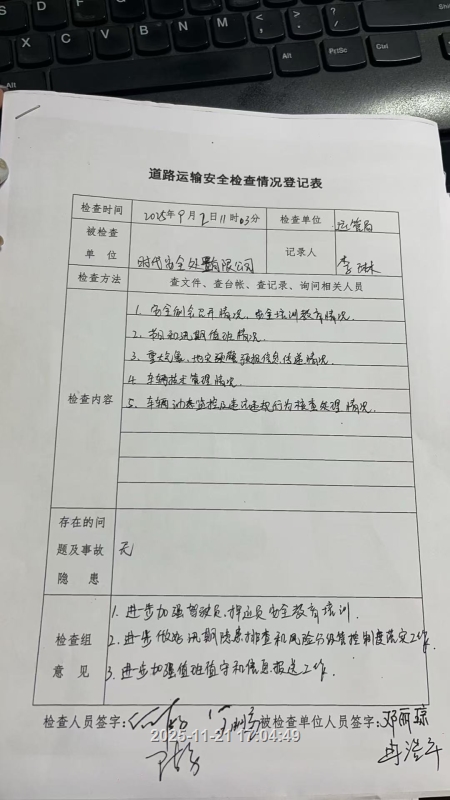 道路运输安全检查情况登记表
检查时间 2025年9月2日11时03分 检查单位 运管局
被检查单位 时代安全处置有限公司 记录人 李琳
检查方法 查文件、查台帐、查记录、询问相关人员
检查内容
1. 安全例会召开情况、安全培训教育情况.
2. 节日和汛期值班情况.
3. 重大气象、地灾预警预报信息传递情况.
4. 车辆技术管理情况.
5. 车辆动态监控及违法违规行为核查处理情况.
存在的问题及事故隐患 无
检查组意见
1. 进步加强驾驶员、押运员安全教育培训.
2. 进步做好汛期隐患排查和风险分级管控制度落实工作.
3. 进步加强值班值守和信息报送工作.
检查人员签字: 被检查单位人员签字: 邓丽琼
2025-11-21 17:04:49